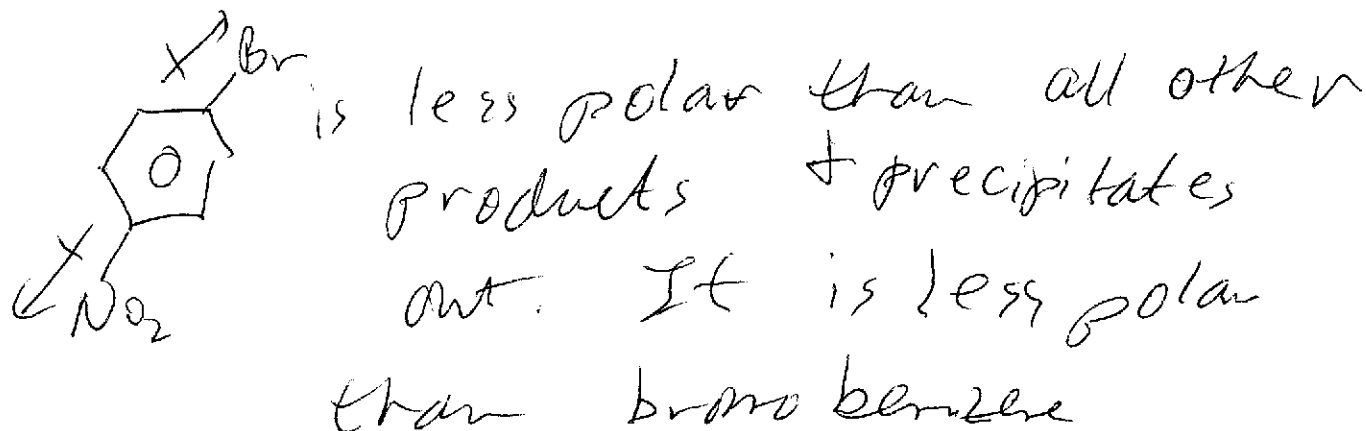 Br
is less polar than all other
products + precipitates
NO2
out. It is less polar
than bromobenzene